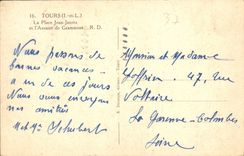 16. TOURS (I.-et-L.)
La Place Jean-Jaurès
et l'Avenue de Grammont
R. D.
Nous passons de
bonnes vacances
a un de ces jours
Nous vous envoyons
nos amitiés
M et Me Schubert
Monsieur et Madame
47, rue
Voltaire
La Garenne-Colombes
Seine